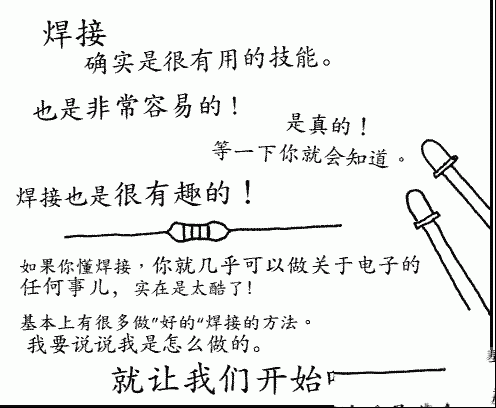 焊接
确实是很有用的技能。
也是非常容易的！
是真的！
等一下你就会知道。
焊接也是很有趣的！
如果你懂焊接，你就几乎可以做关于电子的
任何事儿，实在是太酷了！
基本上有很多做"好的"焊接的方法。
我要说说我是怎么做的。
就让我们开始